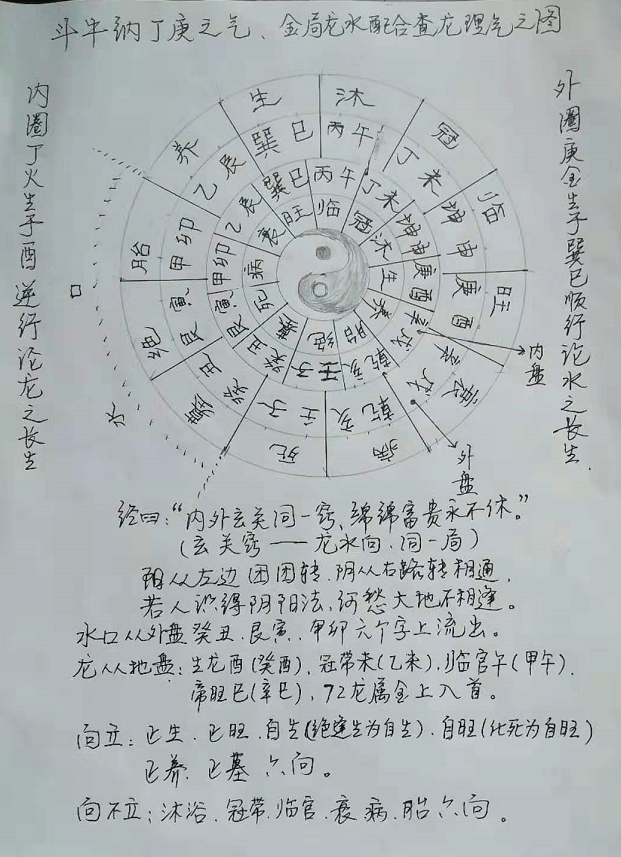 斗牛纳丁庚之气、金局龙水配合查龙理气之图
内圈丁火生子酉逆行论龙之长生
外圈庚金生子巽巳顺行论水之长生.
生 沐 冠 临 旺 衰 病 死 墓 绝 胎 养
巽巳 丙午 丁未 坤申 庚酉 辛戌 乾亥 壬子 癸丑 艮寅 甲卯 乙辰
巽巳 丙午 丁未 坤申 庚酉 辛戌 乾亥 壬子 癸丑 艮寅 甲卯 乙辰
旺 临 冠 沐 生 养 胎 绝 墓 死 病 衰
口
水
内盘
外盘
经曰："内外玄关同一窍、绵绵富贵永不休。"
(玄关窍——龙水向.同一局)
阳从左边团团转.阴从右路转相通.
若人识得阴阳法,何愁大地不相逢。
水口从外盘癸丑、艮寅、甲卯六个字上流出。
龙从地盘:生龙酉(癸酉).冠带未(乙未).临官午(甲午).
帝旺巳(辛巳),72龙属金上入首。
向立:正生.正旺.自生(绝逢生为自生).自旺(化死为自旺)
正养.正墓六向。
向不立:沐浴.冠带.临官.衰病.胎六向.